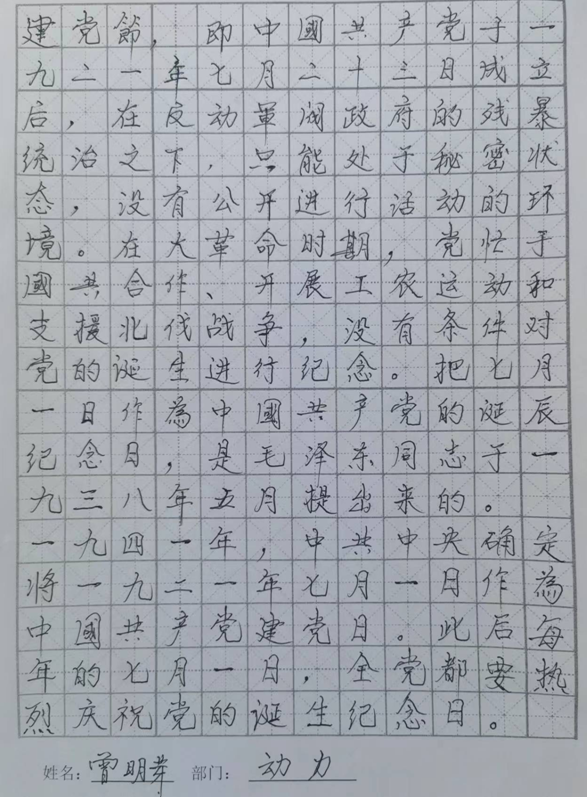 建党節，即中國共产党于一
九二一年七月二十三日成立
后，在反动軍阀政府的残暴
统治之下，只能处于秘密状
态，没有公开进行活动的环
境。在大革命时期，党忙于
國共合作、开展工农运动和
支援北伐战争，没有条件对
党的诞生进行纪念。把七月
一日作為中國共产党的诞辰
纪念日，是毛泽东同志于一
九三八年五月提出来的。
一九四一年，中共中央确定
将一九二一年七月一日作為
中國共产党建党日。此后每
年的七月一日，全党都要热
烈庆祝党的诞生纪念日。
姓名：曾明苹 部门：动力